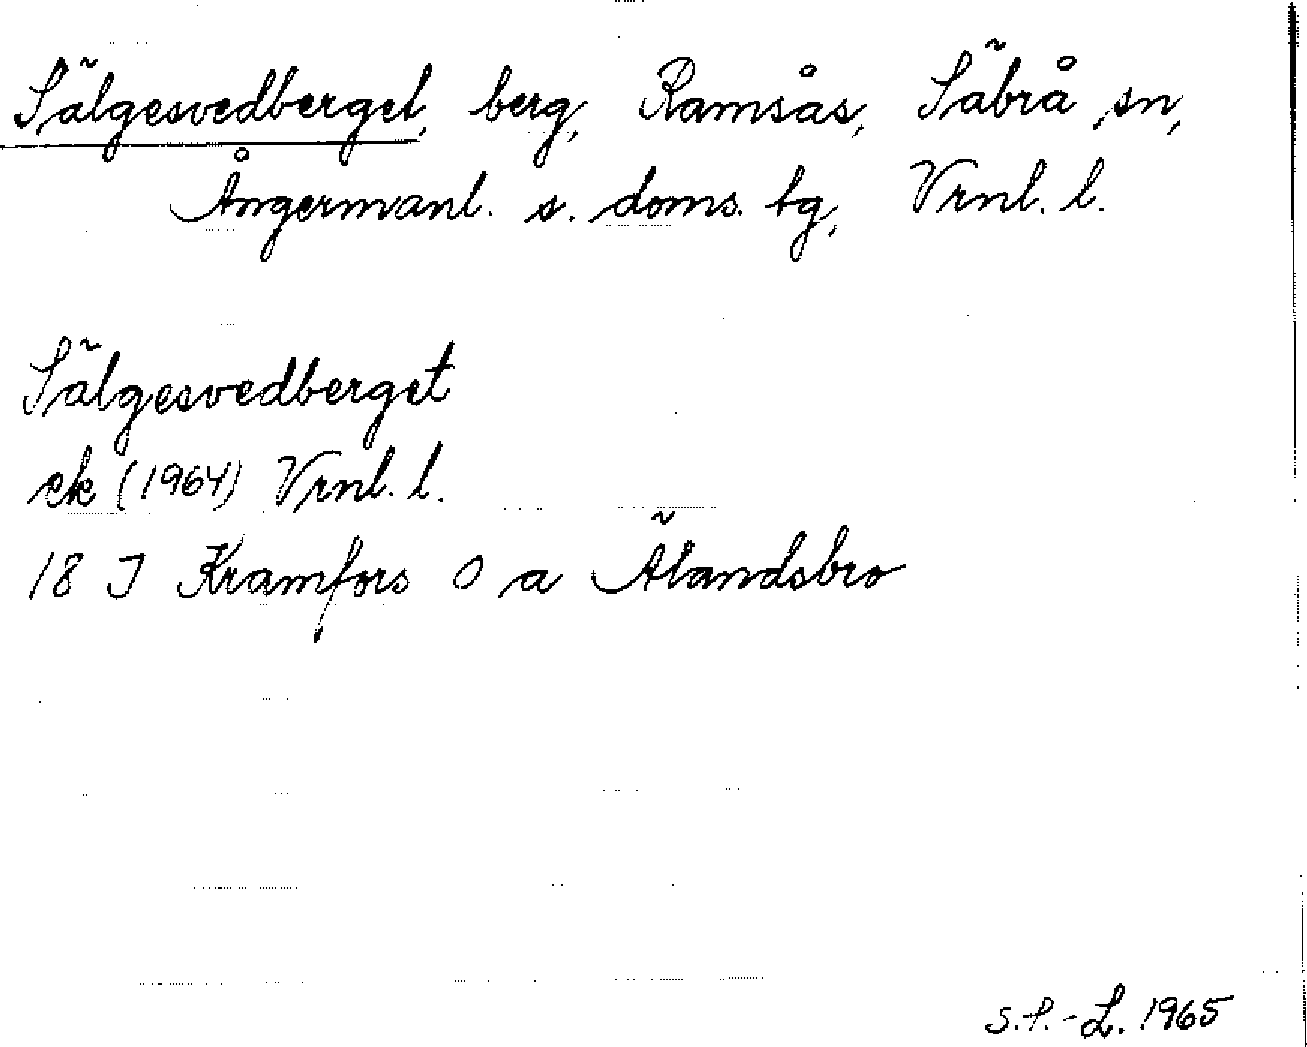 Sälgesvedberget, berg, Ramsås, Säbrå sn,
Ångermanl. s. doms. tg, Vrnl. l.
Sälgesvedberget
ek (1964) Vrnl. l.
18 I Kramfors O a Älandsbro
S.F.-L. 1965